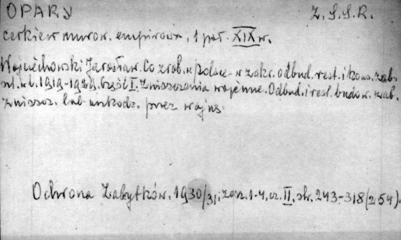 OPARY Z.S.S.R.
cerkiew murow. empirowa, 1 poł. XIX w.
Wojciechowski Jarosław. Co zrob. w Polsce w zakr. odbud. rest. i konserw. zab.
w l. 1919-1929. Część I. Zniszczenia wojenne. Odbud. i rest. budow. zab.
zniszcz. lub uszkodz. przez wojnę.
Ochrona Zabytków, 1930/31, zesz. 1-4, cz. II, str. 243-318 (254).